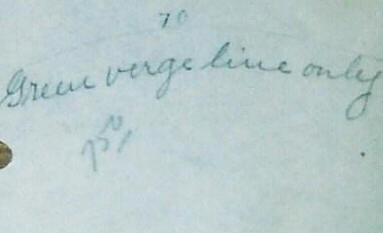 70
Green verge line only